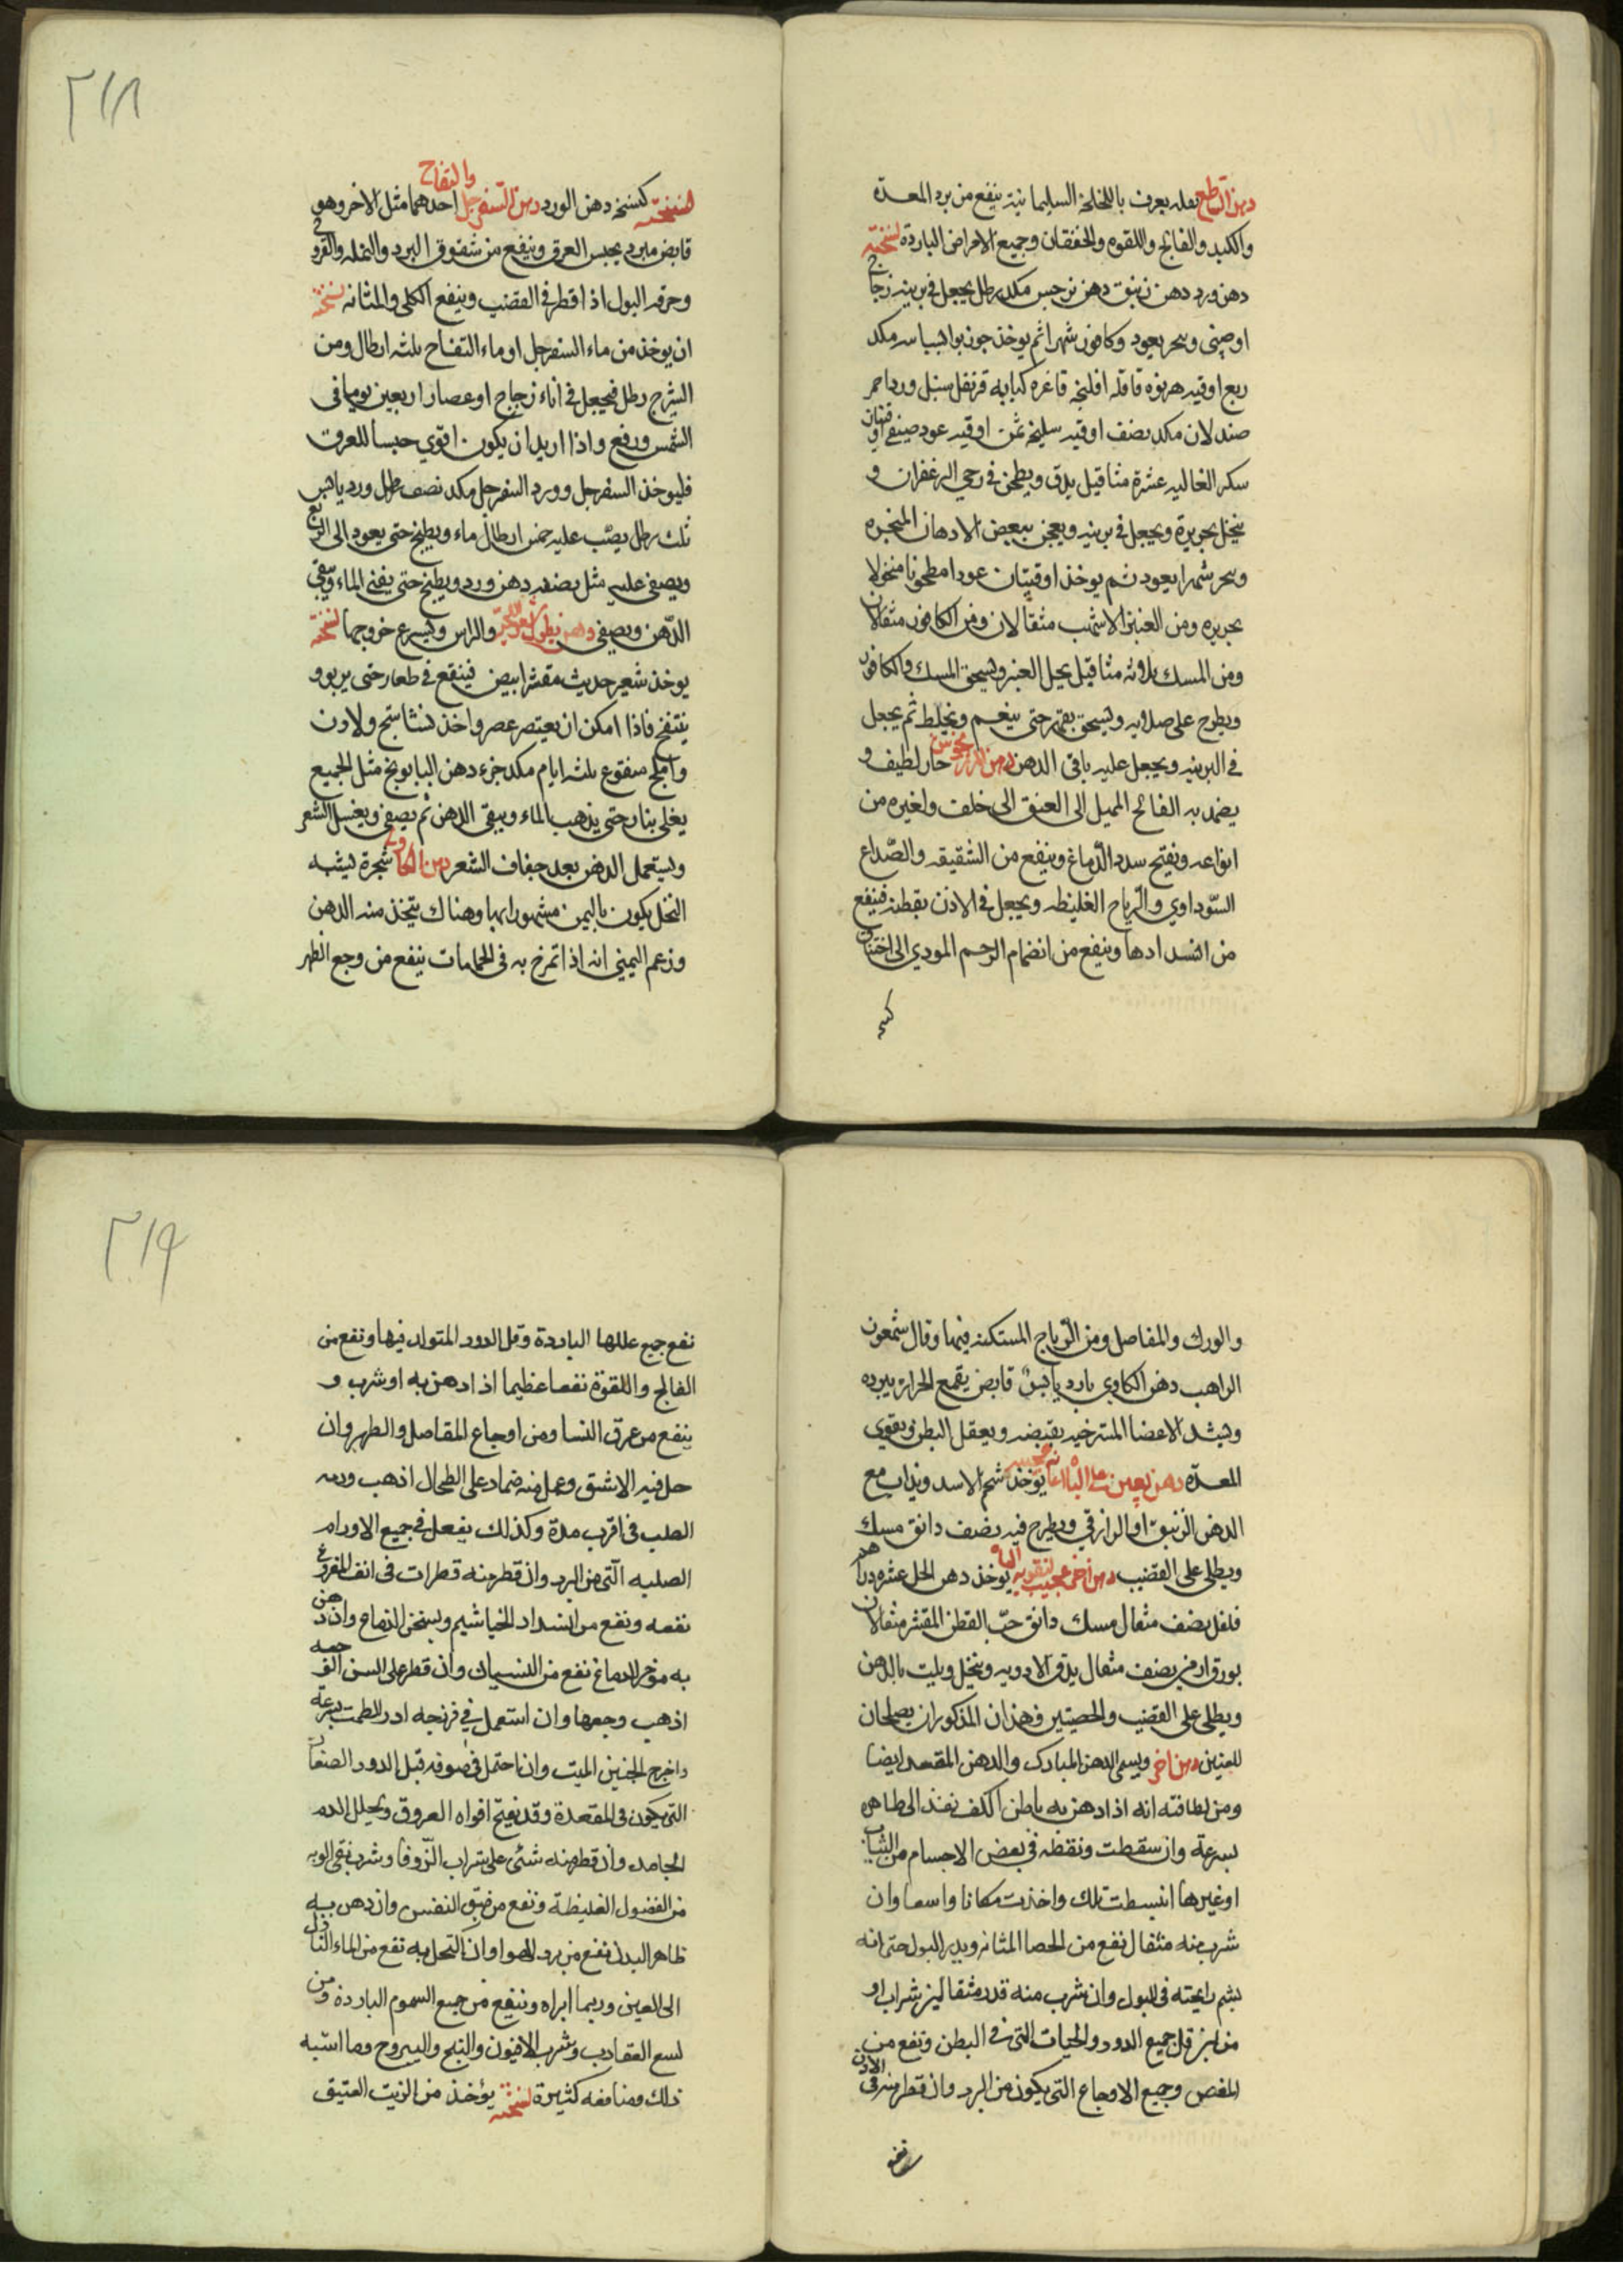 دهن القاطع نقله يعرف باللخلخة السليمانية ينفع من برد المعدة
والكبد والفالج واللقوه والخفقان وجميع الامراض الباردة نسخته
دهن ورد دهن زنبق دهن نرجس مكد رطل يجعل في برنيه زجاج
اوصيني وبخر بعود وكافور شهرا ثم يوخذ جوزبوا بسباسه مكد
ربع اوقيه هرنوه قاقله افلنجه فاغره كبابه قرنفل سنبل ورد احمر
صندلان مكد نصف اوقيه سليخه ثمن اوقيه عود صيني اوقيتان
سكر الغاليه عشرة مثاقيل يدق ويطحن في رحي الزعفران و
ينخل بحريرة ويجعل في برنيه ويعجن ببعض الادهان المبخره
وبخر شهرا بعود ثم يوخذ اوقيتان عودا مطحونا منخولا
بحريره ومن العنبر الاشهب مثقالان ومن الكافور مثقالان
ومن المسك ثلاثه مثاقيل يحل العنبر ويسحق المسك والكافور
ويطرح على صلايه ويسحق بقهر حتى ينعم ويخلط ثم يجعل
في البرنيه ويجعل عليه باقي الدهن دهن المرزنجوش حار لطيف و
يضمد به الفالج المميل الى العنق الى خلف ولغيره من
انواعه ويفتح سدد الدماغ وينفع من الشقيقه والصداع
السوداوي والرياح الغليظه ويجعل في الاذن بقطنه فينفع
من انسدادها وينفع من انضمام الرحم المودي الى اختناق
٣١٨
والتفاح
لنسخته كنسخه دهن الورد دهن السفرجل احدهما مثل الاخر وهو
قابض مبرد يحبس العرق وينفع من شقوق البرد والنمله والقروح
وحرقه البول اذا قطر في القضيب وينفع الكلى والمثانه نسخته
ان يوخذ من ماء السفرجل او ماء التفاح ثلثه ارطال ومن
الشيرج رطل فيجعل في اناء زجاج اوعصارا ربعين يوما في
الشمس ورفع واذا اريد ان يكون اقوي حبسا للعرق
فليوخذ السفرجل وورد السفرجل مكد نصف رطل ورد يابس
ثلث رطل يصب عليه خمس ارطال ماء ويطبخ حتى يعود الى الربع
ويصفي عليه مثل نصفه دهن ورد ويطبخ حتى يفنى الماء ويبقي
الدهن ويصفي دهن يطول شعر اللحية والراس ويسرع خروجها نسخته
يوخذ شعير حديث مقشر ابيض فينقع في طعار حتى يربو و
ينتفخ فاذا امكن ان يعتصر عصر واخذ نشاستج ولادن
واملج منقوع ثلثه ايام مكد جزء دهن البابونج مثل الجميع
يغلى بنار حتى يذهب الماء ويبقى الدهن ثم يصفي ويغسل الشعر
ويستعمل الدهن بعد جفاف الشعر دهن الكاوي شجرة يشبه
النخل يكون باليمن مشهورا بها وهناك يتخذ منه الدهن
وزعم اليمني انه اذا تمرخ به في الحمامات ينفع من وجع الظهر
والورك والمفاصل ومن الرياح المستكنه فيها وقال شمعون
الراهب دهن الكاوي بارد يابس قابض يقمع الحراره ببرده
ويشد الاعضا المسترخيه بقبضه ويعقل البطن ويقوي
المعدة دهن يعين على الباه عجيب يوخذ شحم الاسد ويذاب مع
الدهن الزنبق او الرازقي ويطرح فيه نصف دانق مسك
ويطلى على القضيب دهن اخر عجيب لتقويه الباه يوخذ دهن الحل عشره دراهم
فلفل نصف مثقال مسك دانق حب القطن المقشر مثقالان
بورق ارمني نصف مثقال يدق الادويه وينخل ويلت بالدهن
ويطلى على القضيب والخصيتين فهذان المذكوران يصلحان
للعنين دهن اخر ويسمى الدهن المبارك والدهن المقعد ايضا
ومن لطافته انه اذا دهن به باطن الكف نفذ الى ظاهره
بسرعة وان سقطت ونقطه في بعض الاجسام من الثياب
اوغيرها انبسطت تلك واخذت مكانا واسعا وان
شرب منه مثقال نفع من الحصا المثانه ويدر البول حتى انه
يشم رايحته في البول وان شرب منه قدر مثقالين شراب او
من لبن قتل جميع الدود والحيات التي في البطن ونفع من
المغص وجميع الاوجاع التي يكون من البرد وان قطر منه في الاذن
نفع
٣١٩
نفع جميع عللها الباردة وقتل الدود المتولد فيها ونفع من
الفالج واللقوة نفعا عظيما اذا دهن به اوشرب و
ينفع من عرق النسا ومن اوجاع المفاصل والظهر وان
حل فيه الاشق وعمل منه ضماد على الطحال اذهب ورمه
الصلب في اقرب مدة وكذلك يفعل في جميع الاورام
الصلبه التي من البرد وان قطر منه قطرات في انف المفروغ
نفعه ونفع من انسداد الخياشيم ويسخن الدماغ وان دهن
به موخر الدماغ نفع من النسيان وان قطر على السن الوجعه
اذهب وجعها وان استعمل في فرزجه ادر الطمث بسرعة
واخرج الجنين الميت وان احتمل في صوفه قتل الدود الصغار
التي يكون في المقعدة وقد يفتح افواه العروق ويحلل الدم
الجامد وان قطر منه شئ على شراب الزوفا وشرب نقى الريه
من الفضول الغليظة ونفع من ضيق النفس وان دهن به
ظاهر البدن نفع من برد الهوا وان اكتحل به نفع من الماء النازل
الى العين وربما ابراه وينفع من جميع السموم الباردة ومن
لسع العقارب وشرب الافيون والبنج واليبروح وما اشبه
ذلك ومنافعه كثيرة نسخته يؤخذ من الزيت العتيق